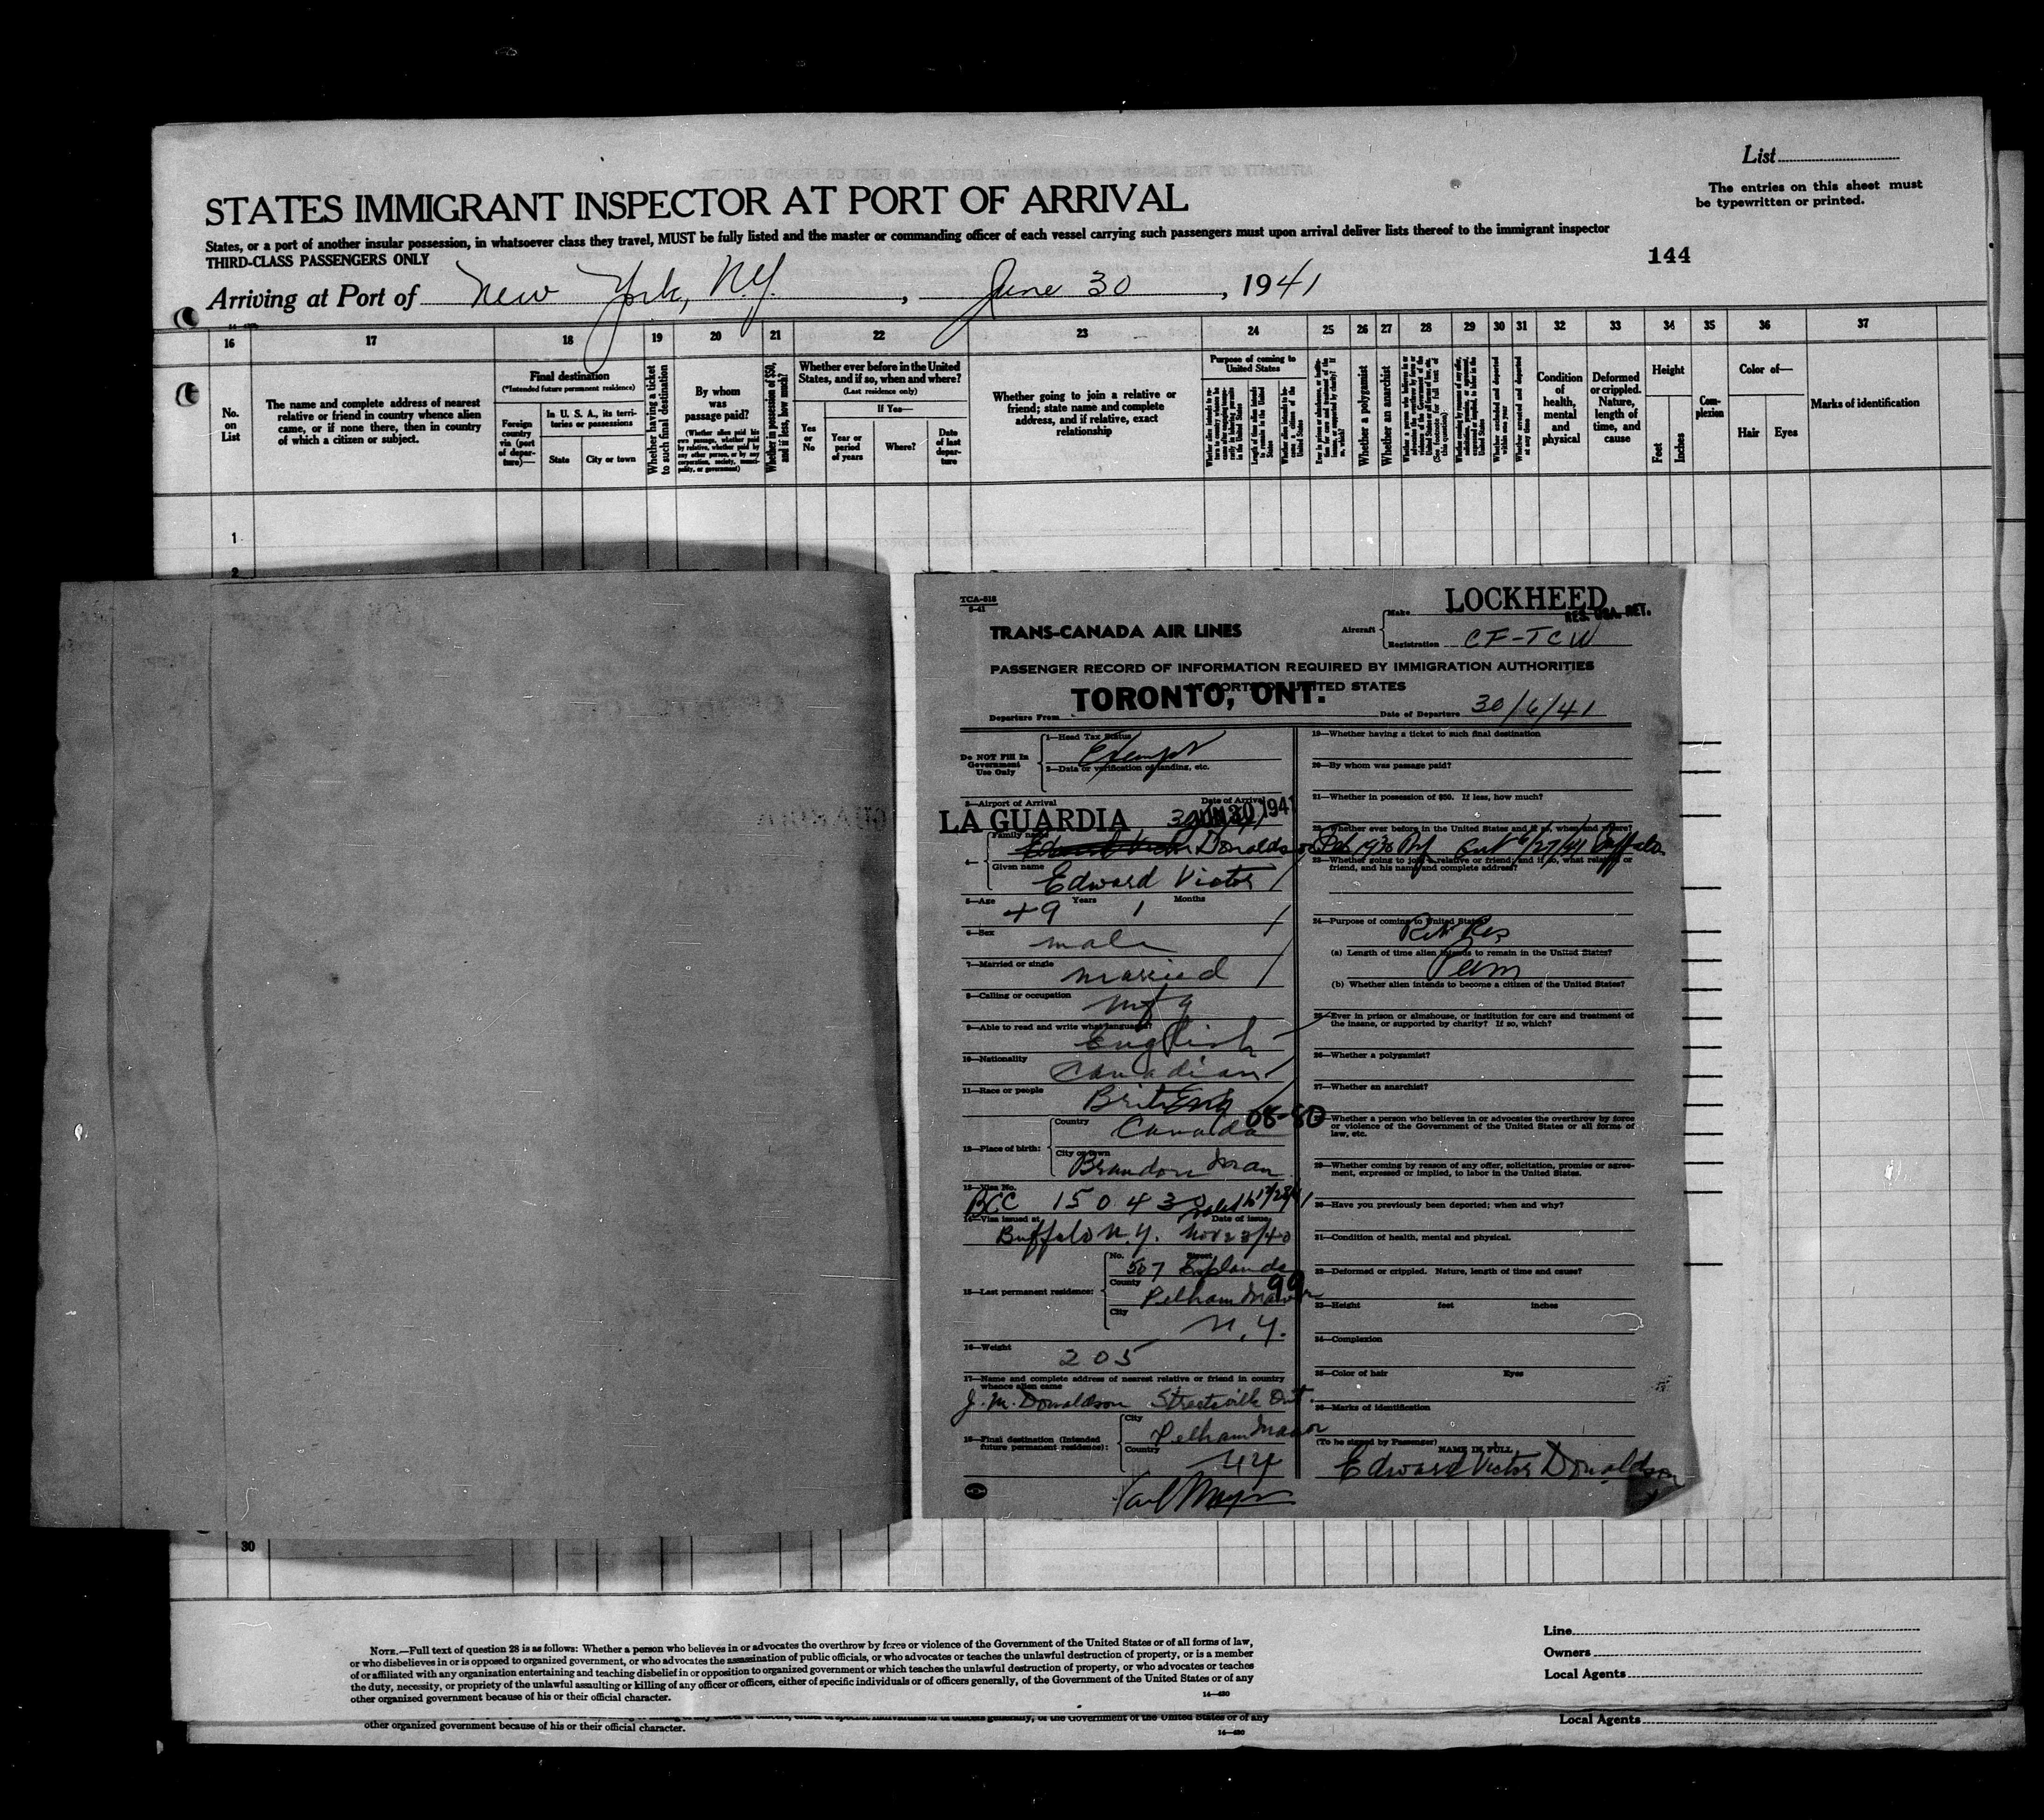 List
The entries on this sheet must
be typewritten or printed.
STATES IMMIGRANT INSPECTOR AT PORT OF ARRIVAL
States, or a port of another insular possession, in whatsoever class they travel, MUST be fully listed and the master or commanding officer of each vessel carrying such passengers must upon arrival deliver lists thereof to the immigrant inspector
THIRD-CLASS PASSENGERS ONLY
144
Arriving at Port of New York, N.Y. , June 30 , 1941
16 17 18 19 20 21 22 23 24 25 26 27 28 29 30 31 32 33 34 35 36 37
No.
on
List
The name and complete address of nearest
relative or friend in country whence alien
came, or if none there, then in country
of which a citizen or subject.
Final destination
(*Intended future permanent residence)
Foreign
country
via (port
of depar-
ture)—
In U. S. A., its terri-
tories or possessions
State
City or town
Whether having a ticket
to such final destination
By whom
was
passage paid?
(Whether alien paid his
own passage, whether paid
by relative, whether paid by
any other person, or by any
corporation, society, munici-
pality, or government)
Whether in possession of $50,
and if less, how much?
Whether ever before in the United
States, and if so, when and where?
(Last residence only)
Yes
or
No
If Yes—
Year or
period
of years
Where?
Date
of last
depar-
ture
Whether going to join a relative or
friend; state name and complete
address, and if relative, exact
relationship
Purpose of coming to
United States
Length of time alien intends
to remain in the United
States
Whether alien intends to be-
come a citizen of the
United States
Whether a polygamist
Whether an anarchist
Whether arrested and deported
at any time
Condition
of
health,
mental
and
physical
Deformed
or crippled.
Nature,
length of
time, and
cause
Height
Feet
Inches
Com-
plexion
Color of—
Hair
Eyes
Marks of identification
1
2
TCA-518
5-41
TRANS-CANADA AIR LINES
Aircraft
Make LOCKHEED
RES. USA. RET.
Registration CF-TCW
PASSENGER RECORD OF INFORMATION REQUIRED BY IMMIGRATION AUTHORITIES
AT PORTS OF UNITED STATES
Departure From TORONTO, ONT.
Date of Departure 30/6/41
Do NOT Fill In
Government
Use Only
1—Head Tax Status
Exempt
2—Data or verification of landing, etc.
3—Airport of Arrival
Date of Arrival
LA GUARDIA JUN 30 1941
4—
Family name
Donaldson
Given name
Edward Victor
5—Age 49 Years 1 Months
6—Sex
male
7—Married or single
married
8—Calling or occupation
mfg
9—Able to read and write what language?
English
10—Nationality
Canadian
11—Race or people
Brit Eng
08-80
12—Place of birth:
Country
Canada
City or town
Brandon Man
13—Visa No.
BCC 150430
14—Visa issued at
Date of issue
Buffalo N.Y. Nov 23/40
15—Last permanent residence:
No.
Street
507 Esplande
99
County
Pelham Manor
City
N.Y.
16—Weight
205
17—Name and complete address of nearest relative or friend in country
whence alien came
J. M. Donaldson Streetsville Ont.
18—Final destination (Intended
future permanent residence):
City
Pelham Manor
Country
NY
19—Whether having a ticket to such final destination
20—By whom was passage paid?
21—Whether in possession of $50. If less, how much?
22—Whether ever before in the United States and if so, when and where?
Feb 1936 6/27/41 Buffalo
23—Whether going to join a relative or friend; and if so, what relative or
friend, and his name and complete address?
24—Purpose of coming to United States?
Ret Res
(a) Length of time alien intends to remain in the United States?
Perm
(b) Whether alien intends to become a citizen of the United States?
25—Ever in prison or almshouse, or institution for care and treatment of
the insane, or supported by charity? If so, which?
26—Whether a polygamist?
27—Whether an anarchist?
28—Whether a person who believes in or advocates the overthrow by force
or violence of the Government of the United States or all forms of
law, etc.
29—Whether coming by reason of any offer, solicitation, promise or agree-
ment, expressed or implied, to labor in the United States.
30—Have you previously been deported; when and why?
31—Condition of health, mental and physical.
32—Deformed or crippled. Nature, length of time and cause?
33—Height feet inches
34—Complexion
35—Color of hair Eyes
36—Marks of identification
(To be signed by Passenger)
NAME IN FULL
Edward Victor Donaldson
30
NOTE.—Full text of question 28 is as follows: Whether a person who believes in or advocates the overthrow by force or violence of the Government of the United States or of all forms of law,
or who disbelieves in or is opposed to organized government, or who advocates the assassination of public officials, or who advocates or teaches the unlawful destruction of property, or is a member
of or affiliated with any organization entertaining and teaching disbelief in or opposition to organized government or which teaches the unlawful destruction of property, or who advocates or teaches
the duty, necessity, or propriety of the unlawful assaulting or killing of any officer or officers, either of specific individuals or of officers generally, of the Government of the United States or of any
other organized government because of his or their official character.
14—430
Line
Owners
Local Agents
other organized government because of his or their official character.
14—430
Local Agents